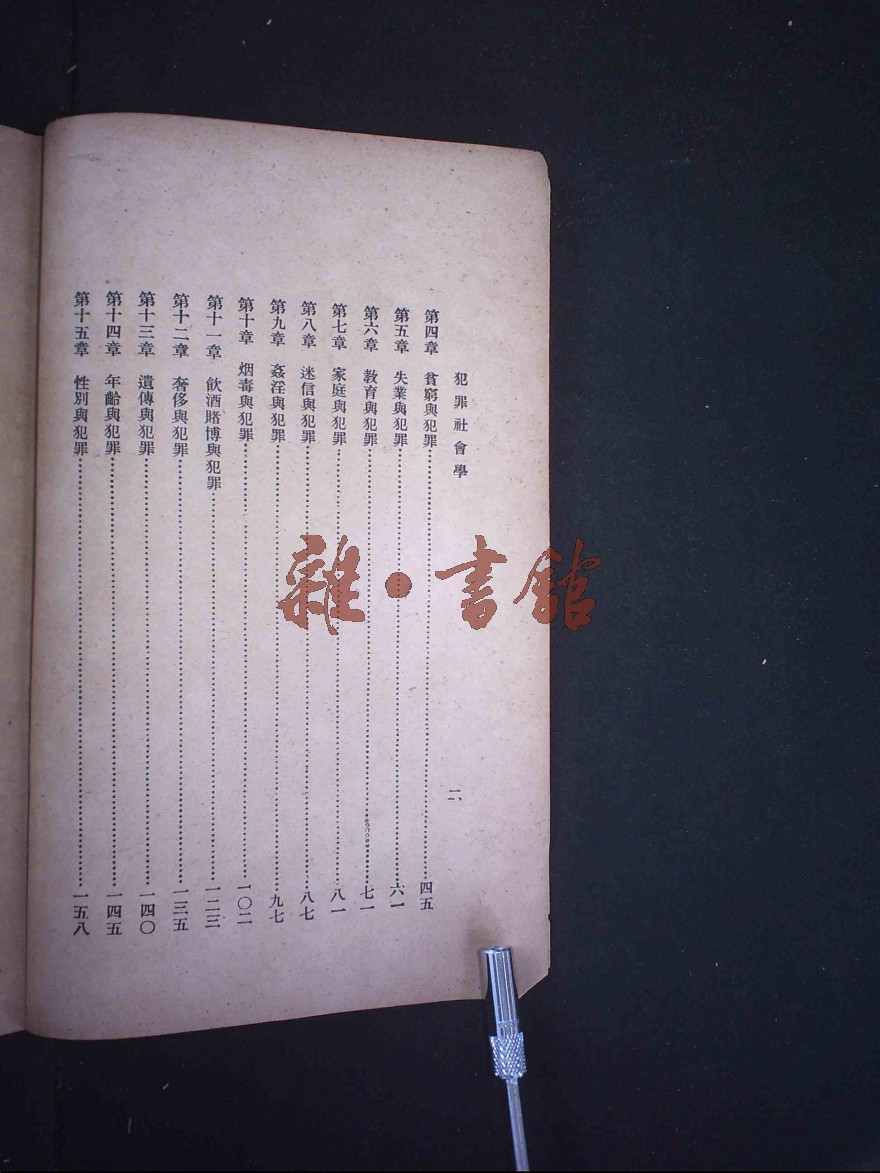 犯罪社會學
二
第四章 貧窮與犯罪……四五
第五章 失業與犯罪……六一
第六章 教育與犯罪……七一
第七章 家庭與犯罪……八一
第八章 迷信與犯罪……八七
第九章 姦淫與犯罪……九七
第十章 烟毒與犯罪……一〇二
第十一章 飲酒賭博與犯罪……一二三
第十二章 奢侈與犯罪……一三五
第十三章 遺傳與犯罪……一四〇
第十四章 年齡與犯罪……一四五
第十五章 性別與犯罪……一五八
雜·書館